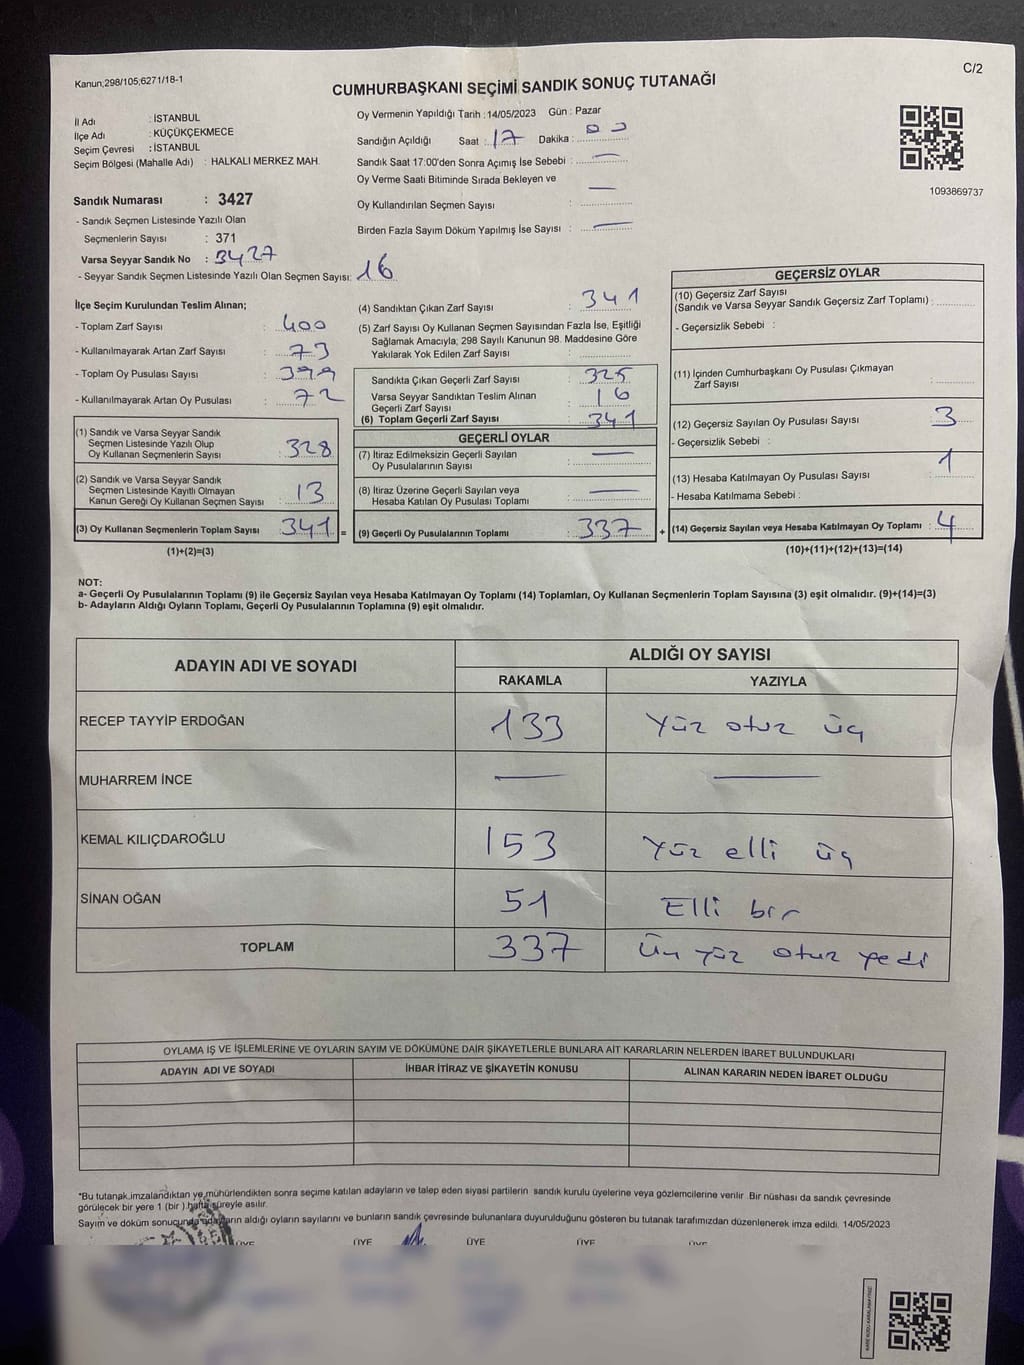 Kanun;298/105;6271/18-1
C/2
CUMHURBAŞKANI SEÇİMİ SANDIK SONUÇ TUTANAĞI
İl Adı : İSTANBUL
İlçe Adı : KÜÇÜKÇEKMECE
Seçim Çevresi : İSTANBUL
Seçim Bölgesi (Mahalle Adı) : HALKALI MERKEZ MAH.
Sandık Numarası : 3427
- Sandık Seçmen Listesinde Yazılı Olan
Seçmenlerin Sayısı : 371
Varsa Seyyar Sandık No : 3427
- Seyyar Sandık Seçmen Listesinde Yazılı Olan Seçmen Sayısı: 16
Oy Vermenin Yapıldığı Tarih : 14/05/2023 Gün : Pazar
Sandığın Açıldığı Saat : 17 Dakika : 00
Sandık Saat 17:00'den Sonra Açımış İse Sebebi : —
Oy Verme Saati Bitiminde Sırada Bekleyen ve —
Oy Kullandırılan Seçmen Sayısı :
Birden Fazla Sayım Döküm Yapılmış İse Sayısı : —
1093869737
İlçe Seçim Kurulundan Teslim Alınan;
- Toplam Zarf Sayısı : 400
- Kullanılmayarak Artan Zarf Sayısı : 73
- Toplam Oy Pusulası Sayısı : 399
- Kullanılmayarak Artan Oy Pusulası : 72
(1) Sandık ve Varsa Seyyar Sandık
Seçmen Listesinde Yazılı Olup
Oy Kullanan Seçmenlerin Sayısı 328
(2) Sandık ve Varsa Seyyar Sandık
Seçmen Listesinde Kayıtlı Olmayan
Kanun Gereği Oy Kullanan Seçmen Sayısı 13
(3) Oy Kullanan Seçmenlerin Toplam Sayısı 341 =
(1)+(2)=(3)
(4) Sandıktan Çıkan Zarf Sayısı : 341
(5) Zarf Sayısı Oy Kullanan Seçmen Sayısından Fazla İse, Eşitliği
Sağlamak Amacıyla; 298 Sayılı Kanunun 98. Maddesine Göre
Yakılarak Yok Edilen Zarf Sayısı :
Sandıkta Çıkan Geçerli Zarf Sayısı : 325
Varsa Seyyar Sandıktan Teslim Alınan
Geçerli Zarf Sayısı : 16
(6) Toplam Geçerli Zarf Sayısı : 341
GEÇERLİ OYLAR
(7) İtiraz Edilmeksizin Geçerli Sayılan
Oy Pusulalarının Sayısı : —
(8) İtiraz Üzerine Geçerli Sayılan veya
Hesaba Katılan Oy Pusulası Toplamı : —
(9) Geçerli Oy Pusulalarının Toplamı : 337 +
GEÇERSİZ OYLAR
(10) Geçersiz Zarf Sayısı
(Sandık ve Varsa Seyyar Sandık Geçersiz Zarf Toplamı) :
- Geçersizlik Sebebi :
(11) İçinden Cumhurbaşkanı Oy Pusulası Çıkmayan
Zarf Sayısı :
(12) Geçersiz Sayılan Oy Pusulası Sayısı : 3
- Geçersizlik Sebebi :
(13) Hesaba Katılmayan Oy Pusulası Sayısı : 1
- Hesaba Katılmama Sebebi :
(14) Geçersiz Sayılan veya Hesaba Katılmayan Oy Toplamı : 4
(10)+(11)+(12)+(13)=(14)
NOT:
a- Geçerli Oy Pusulalarının Toplamı (9) ile Geçersiz Sayılan veya Hesaba Katılmayan Oy Toplamı (14) Toplamları, Oy Kullanan Seçmenlerin Toplam Sayısına (3) eşit olmalıdır. (9)+(14)=(3)
b- Adayların Aldığı Oyların Toplamı, Geçerli Oy Pusulalarının Toplamına (9) eşit olmalıdır.
ADAYIN ADI VE SOYADI
ALDIĞI OY SAYISI
RAKAMLA YAZIYLA
RECEP TAYYİP ERDOĞAN 133 Yüz otuz üç
MUHARREM İNCE — —
KEMAL KILIÇDAROĞLU 153 Yüz elli üç
SİNAN OĞAN 51 Elli bir
TOPLAM 337 Üç yüz otuz yedi
OYLAMA İŞ VE İŞLEMLERİNE VE OYLARIN SAYIM VE DÖKÜMÜNE DAİR ŞİKAYETLERLE BUNLARA AİT KARARLARIN NELERDEN İBARET BULUNDUKLARI
ADAYIN ADI VE SOYADI İHBAR İTİRAZ VE ŞİKAYETİN KONUSU ALINAN KARARIN NEDEN İBARET OLDUĞU
*Bu tutanak,imzalandıktan ve mühürlendikten sonra seçime katılan adayların ve talep eden siyasi partilerin sandık kurulu üyelerine veya gözlemcilerine verilir. Bir nüshası da sandık çevresinde
görülecek bir yere 1 (bir ) hafta süreyle asılır.
Sayım ve döküm sonucunda adayların aldığı oyların sayılarını ve bunların sandık çevresinde bulunanlara duyurulduğunu gösteren bu tutanak tarafımızdan düzenlenerek imza edildi. 14/05/2023
ÜYE ÜYE ÜYE ÜYE ÜYE